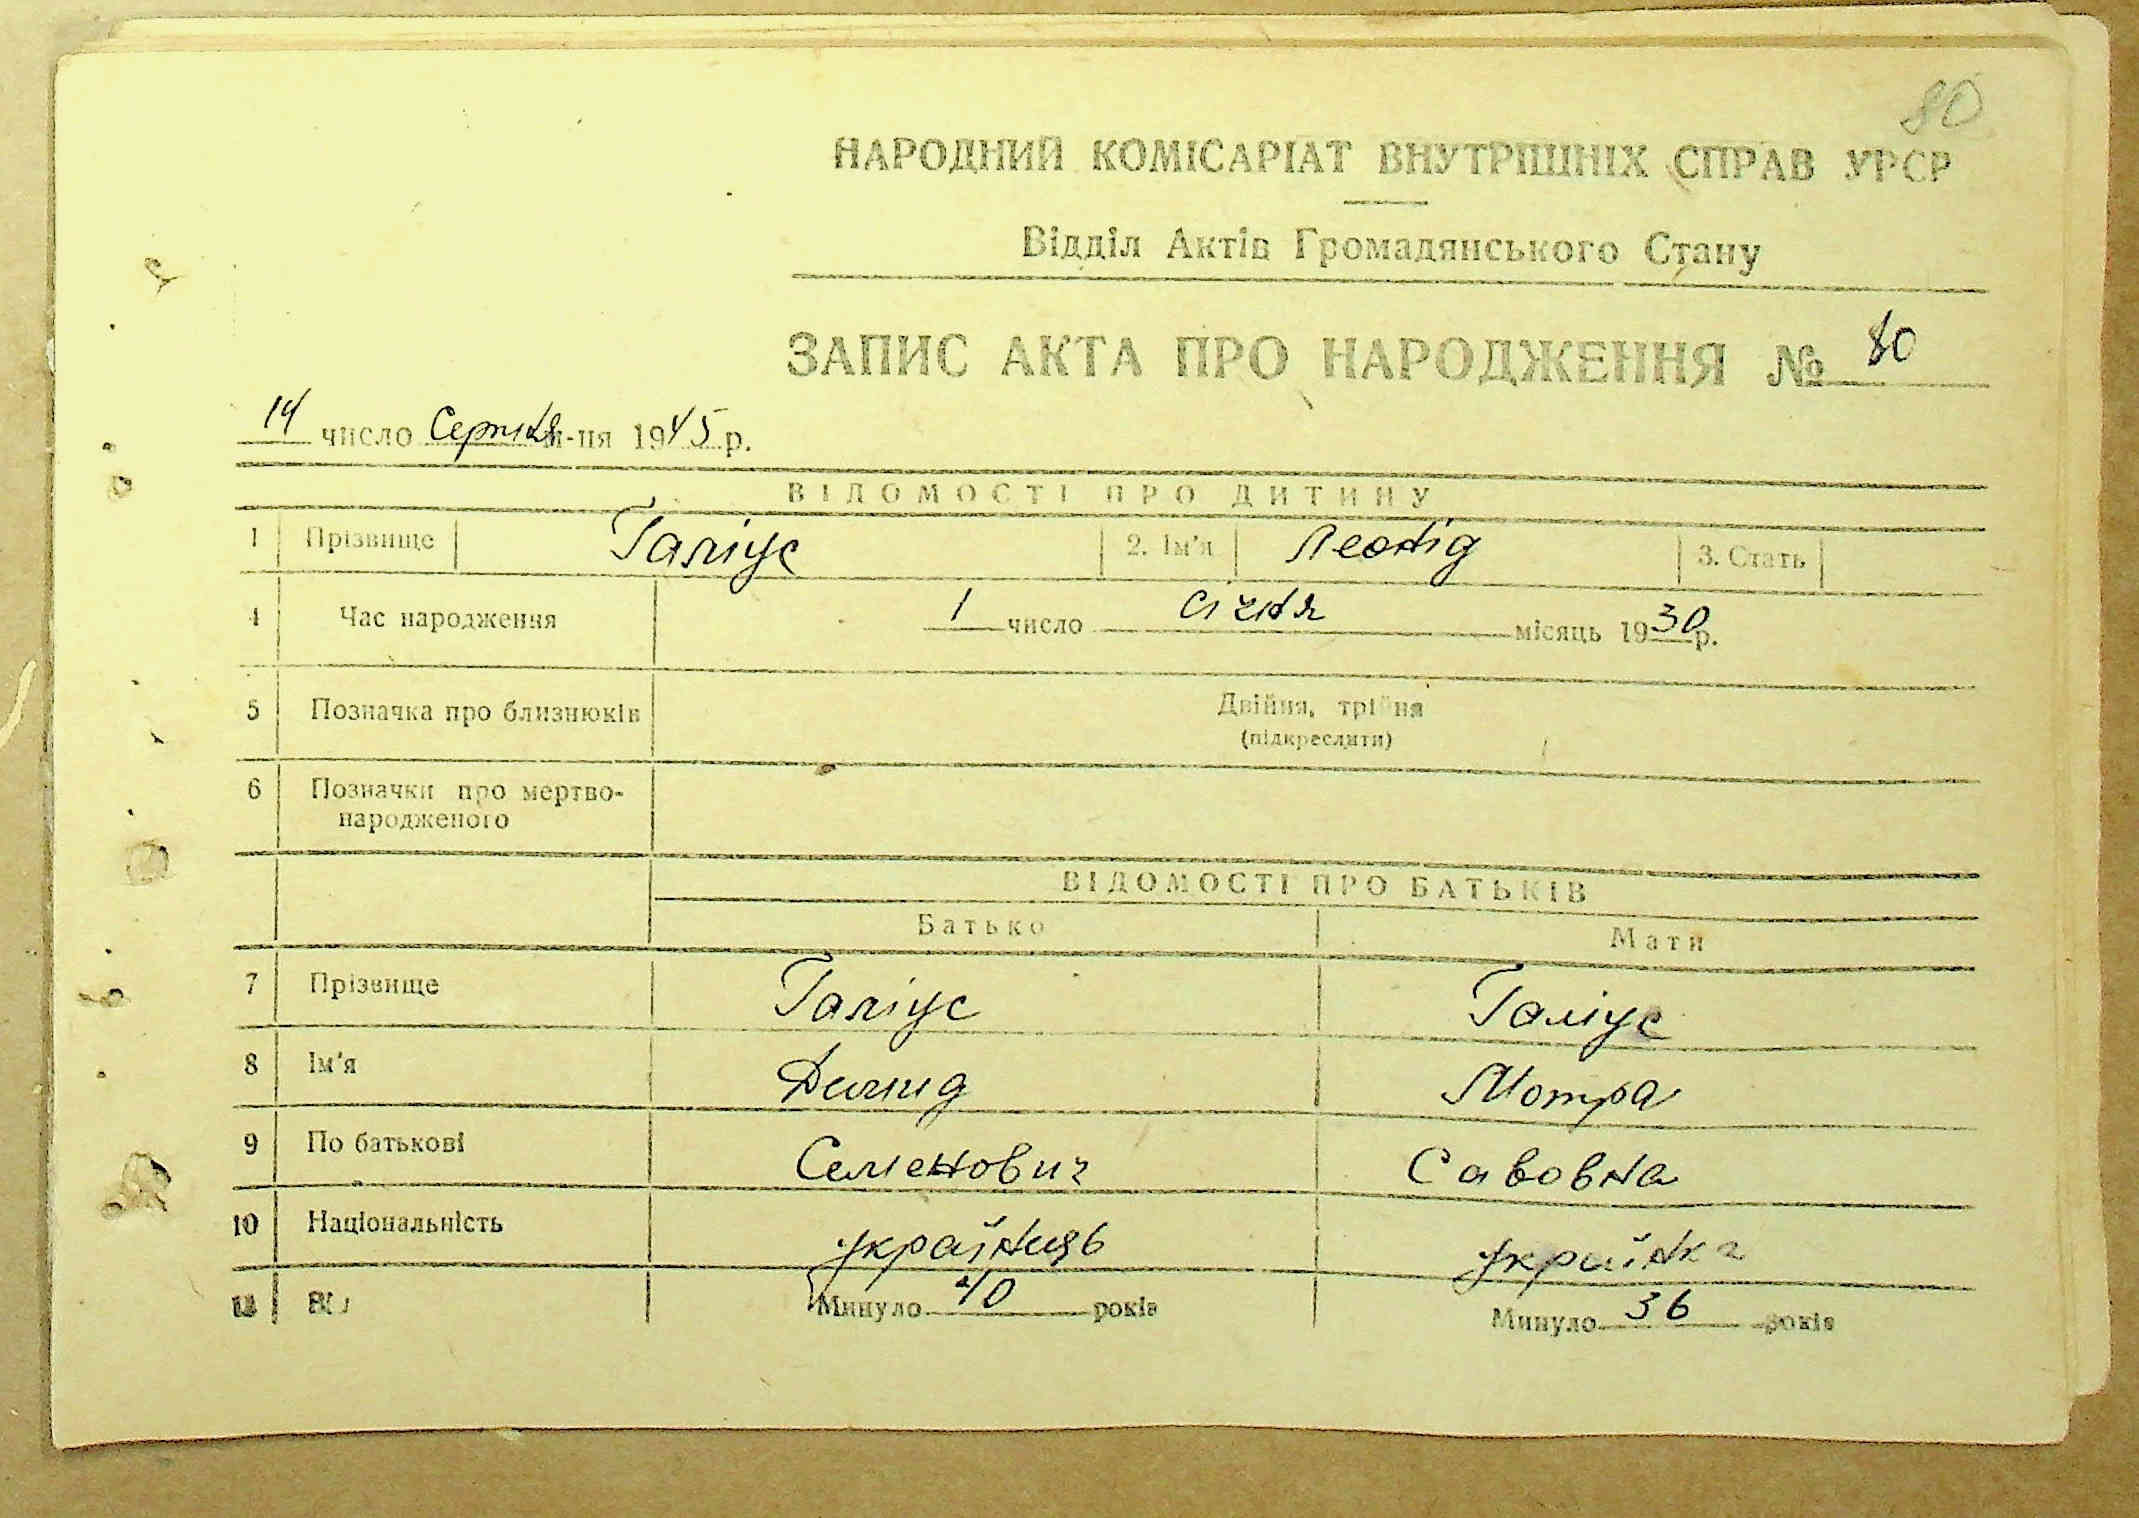 80
НАРОДНИЙ КОМІСАРІАТ ВНУТРІШНІХ СПРАВ УРСР
Відділ Актів Громадянського Стану
ЗАПИС АКТА ПРО НАРОДЖЕННЯ № 80
14 число Серпня м-ця 1945 р.
ВІДОМОСТІ ПРО ДИТИНУ
1 Прізвище Галіус 2. Ім'я Леонід 3. Стать
4 Час народження 1 число січня місяць 1930 р.
5 Позначка про близнюків Двійня, трійня
(підкреслити)
6 Позначки про мертво-
народженого
ВІДОМОСТІ ПРО БАТЬКІВ
Батько Мати
7 Прізвище Галіус Галіус
8 Ім'я Демид Мотра
9 По батькові Семенович Савовна
10 Національність українець українка
11 Вік Минуло 40 років Минуло 36 років